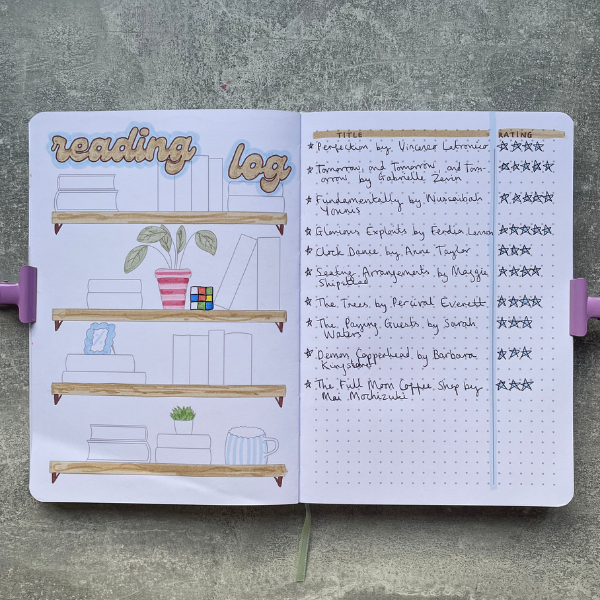 reading
log
TITLE RATING
Perfection by Vincenzo Latronico
Tomorrow, and Tomorrow, and Tom-
orrow by Gabrielle Zevin
Fundamentally by Nussaibah
Younis
Glorious Exploits by Ferdia Lennon
Clock Dance by Anne Tayler
Seating Arrangements by Maggie
Shipstead
The Trees by Percival Everett
The Paying Guests by Sarah
Waters
Demon Copperhead by Barbara
Kingsland
The Full Moon Coffee Shop by
Mai Mochizuki